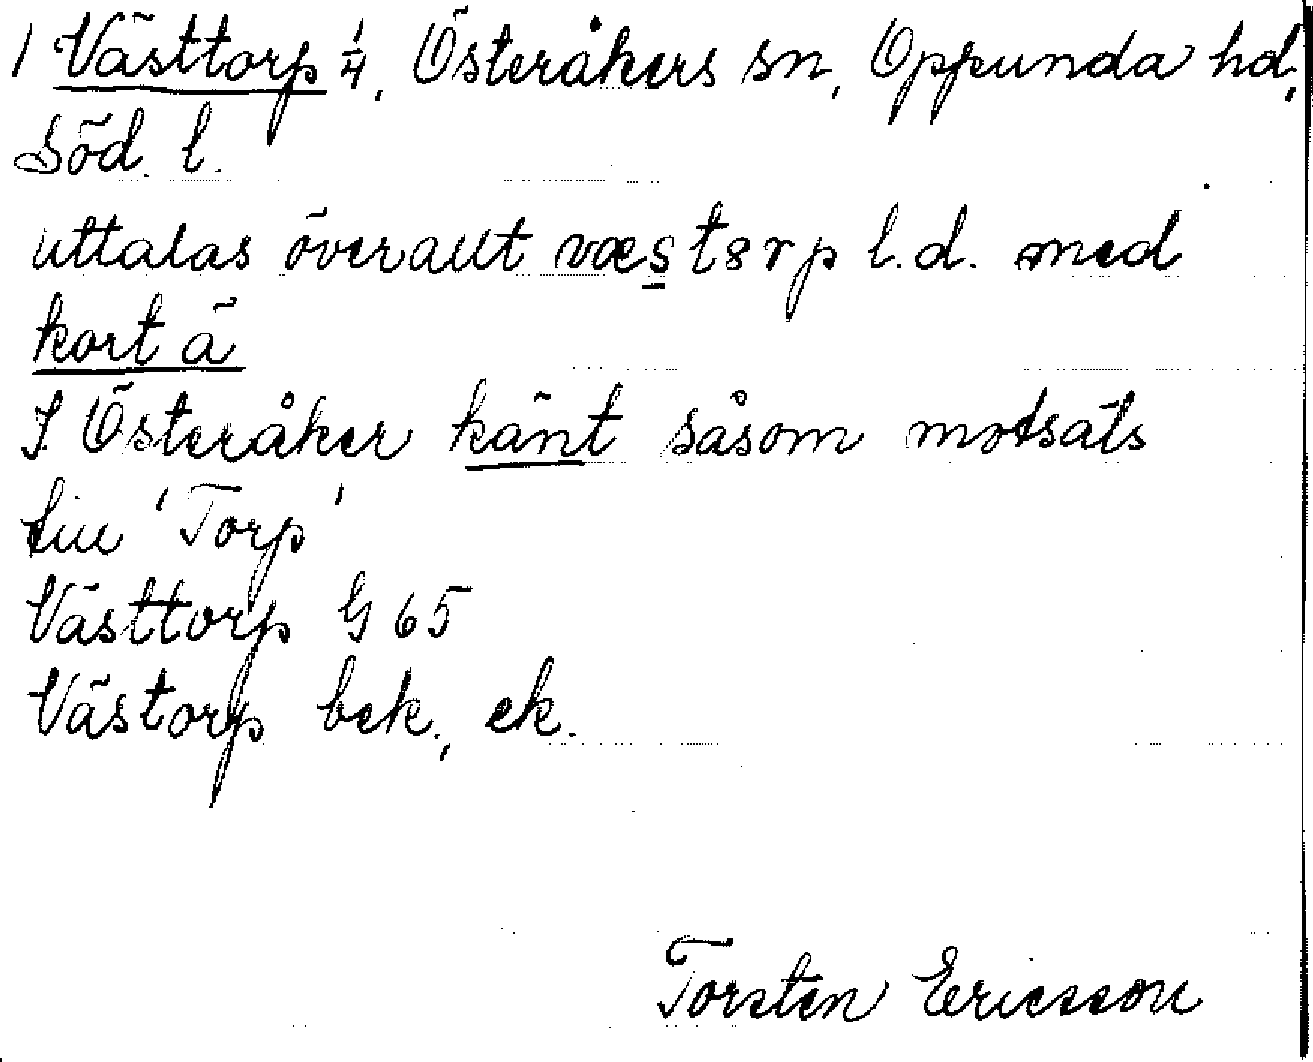 1 Västtorp 1/4, Österåkers sn, Oppunda hd,
Söd. l.
uttalas överallt væstsrp l.d. med
kort ä
I Österåker känt såsom motsats
till 'Torp'
Västtorp G 65
Västorp bek., ek.
Torsten Ericsson